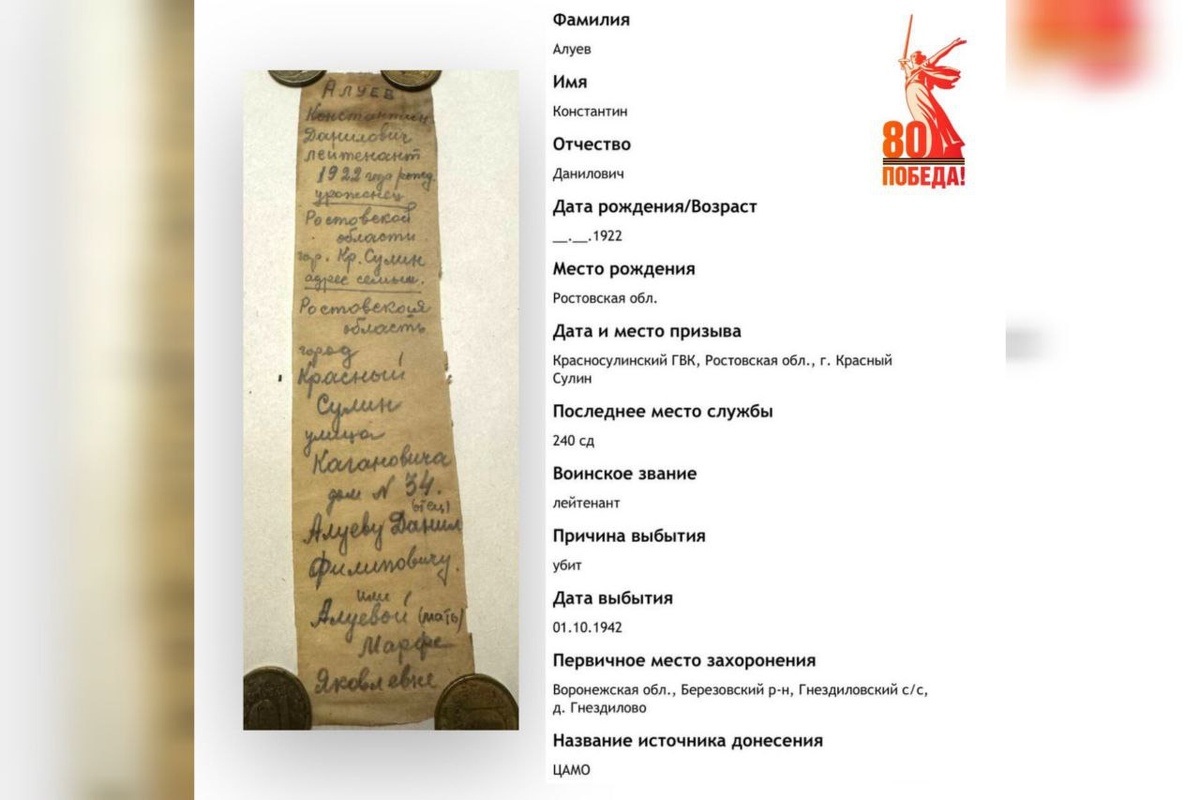 АЛУЕВ
Константин
Данилович
лейтенант
1922 года рожд
урожанец
Ростовской
области
гор. Кр. Сулин
адрес семьи.
Ростовская
область
город
Красный
Сулин
улица
Кагановича
дом N 34.
(отец)
Алуеву Данил
Филиповичу.
или
Алуевой (мать)
Марфе
Яковлевне
Фамилия
Алуев
Имя
Константин
Отчество
Данилович
Дата рождения/Возраст
__.__.1922
Место рождения
Ростовская обл.
Дата и место призыва
Красносулинский ГВК, Ростовская обл., г. Красный
Сулин
Последнее место службы
240 сд
Воинское звание
лейтенант
Причина выбытия
убит
Дата выбытия
01.10.1942
Первичное место захоронения
Воронежская обл., Березовский р-н, Гнездиловский с/с,
д. Гнездилово
Название источника донесения
ЦАМО
80
ПОБЕДА!